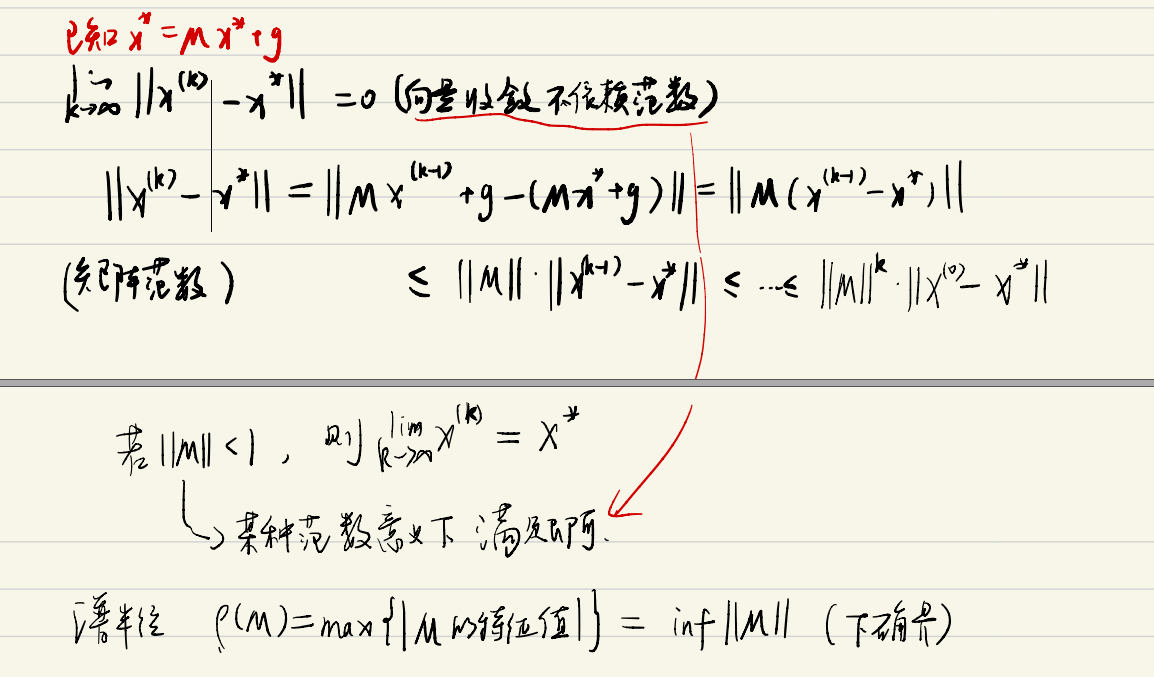 已知 x* = Mx* + g
lim k→∞ ||x^(k) - x*|| = 0 (向量收敛不依赖范数)
||x^(k) - x*|| = ||Mx^(k-1) + g - (Mx* + g)|| = ||M(x^(k-1) - x*)||
(矩阵范数) ≤ ||M||·||x^(k-1) - x*|| ≤ ...≤ ||M||^k·||x^(0) - x*||
若||M||<1, 则 lim k→∞ x^(k) = x*
某种范数意义下满足即可.
谱半径 ρ(M)=max{|M的特征值|} = inf||M|| (下确界)